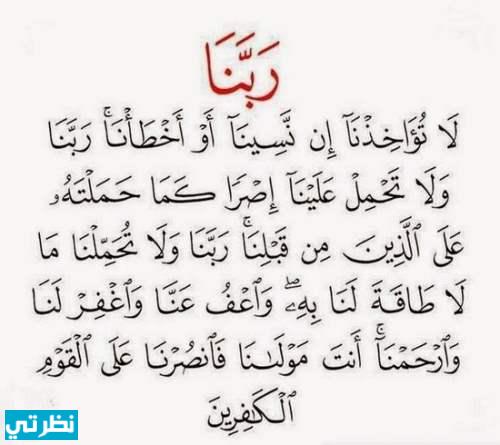 رَبَّنَا
لَا تُؤَاخِذْنَآ إِن نَّسِينَآ أَوْ أَخْطَأْنَا ۚ رَبَّنَا
وَلَا تَحْمِلْ عَلَيْنَآ إِصْرًا كَمَا حَمَلْتَهُۥ
عَلَى ٱلَّذِينَ مِن قَبْلِنَا ۚ رَبَّنَا وَلَا تُحَمِّلْنَا مَا
لَا طَاقَةَ لَنَا بِهِۦ ۖ وَٱعْفُ عَنَّا وَٱغْفِرْ لَنَا
وَٱرْحَمْنَآ ۚ أَنتَ مَوْلَىٰنَا فَٱنصُرْنَا عَلَى ٱلْقَوْمِ
ٱلْكَٰفِرِينَ
نظرتي